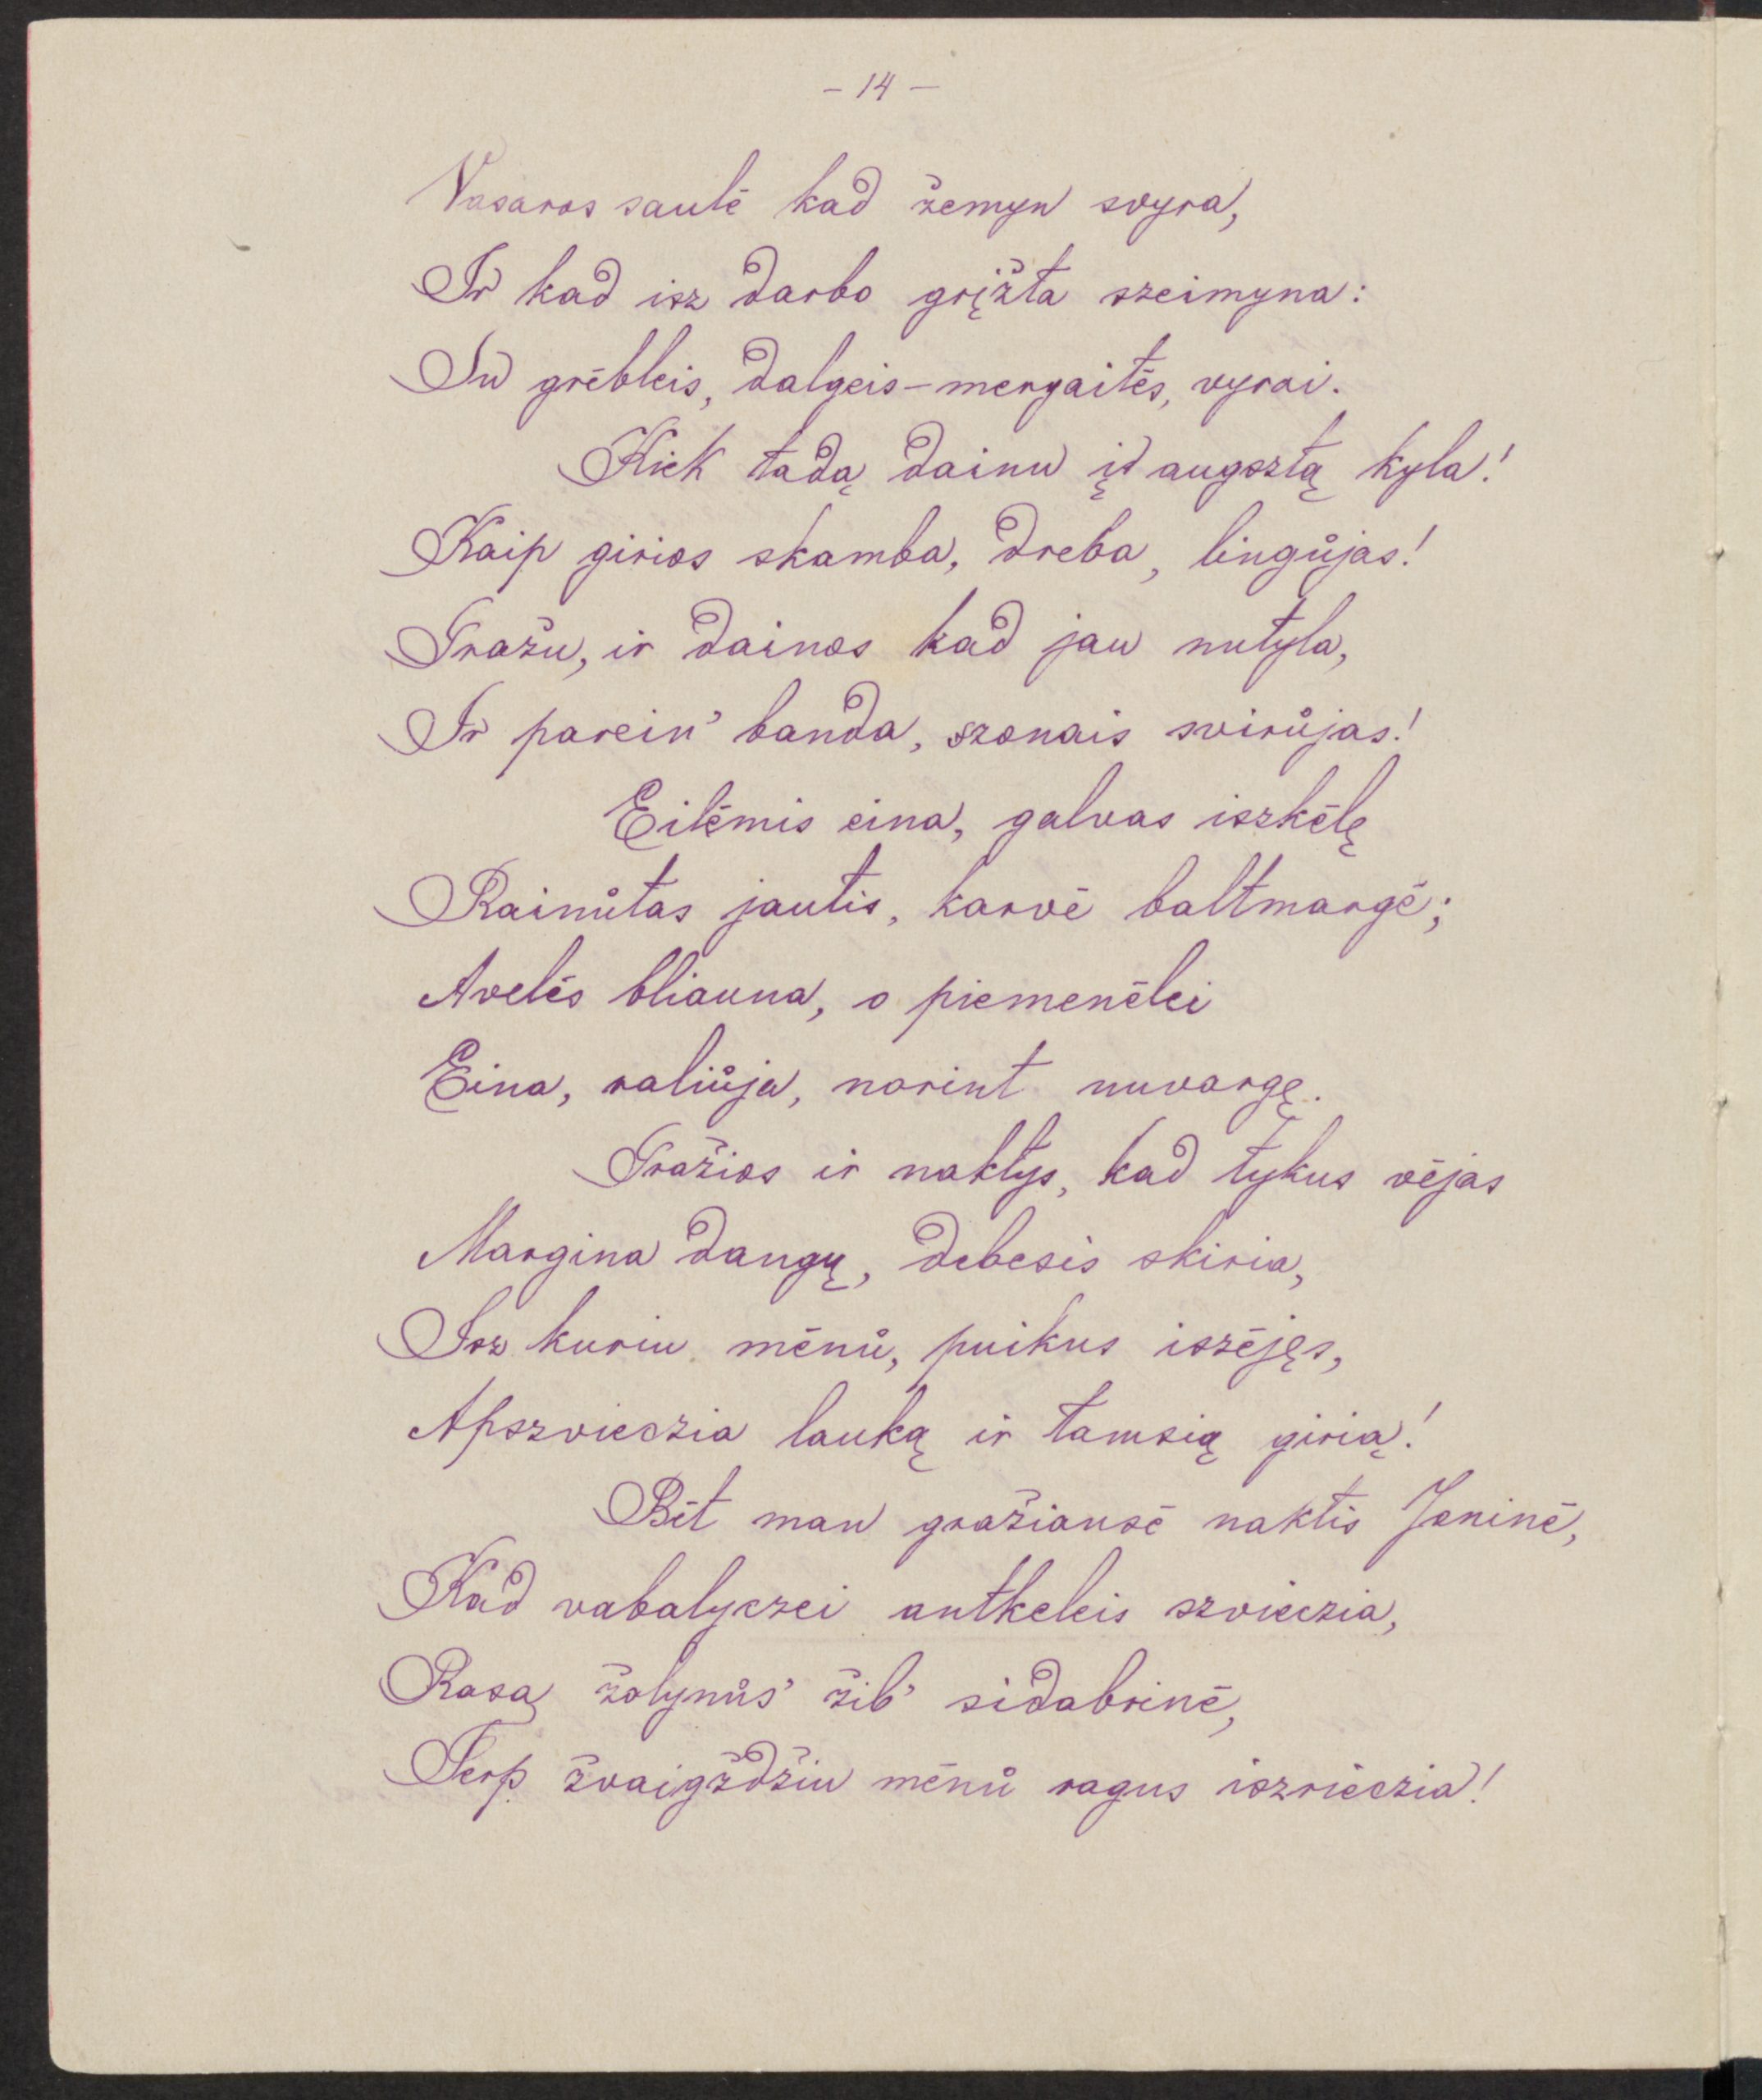 - 14 -
Vasaros saulė kad žemyn svyra,
Ir kad isz darbo grįžta szeimyna:
Su grėbleis, dalgeis - mergaitės, vyrai.
Kiek tadą dainu įt augsztą kyla!
Kaip girios skamba, dreba, lingůjas!
Gražu, ir dainos kad jau nutyla,
Ir parein' banda, szonais svirůjas!
Eilėmis eina, galvas iszkėlę
Rainůtas jautis, karvė baltmargė;
Avelės bliauna, o piemenėlei
Eina, raliůja, norint nuvargę.
Gražios ir naktys, kad tykus vėjas
Margina dangų, debesis skiria,
Isz kuriu mėnů, puikus iszėjęs,
Apszvieczia lauką ir tamsią girią!
Bėt man gražiausė naktis Joninė,
Kad vabalyczei antkeleis szvieczia,
Rasa žolynůs' žib' sidabrinė,
Terp žvaigždžiu mėnů ragus iszrieczia!